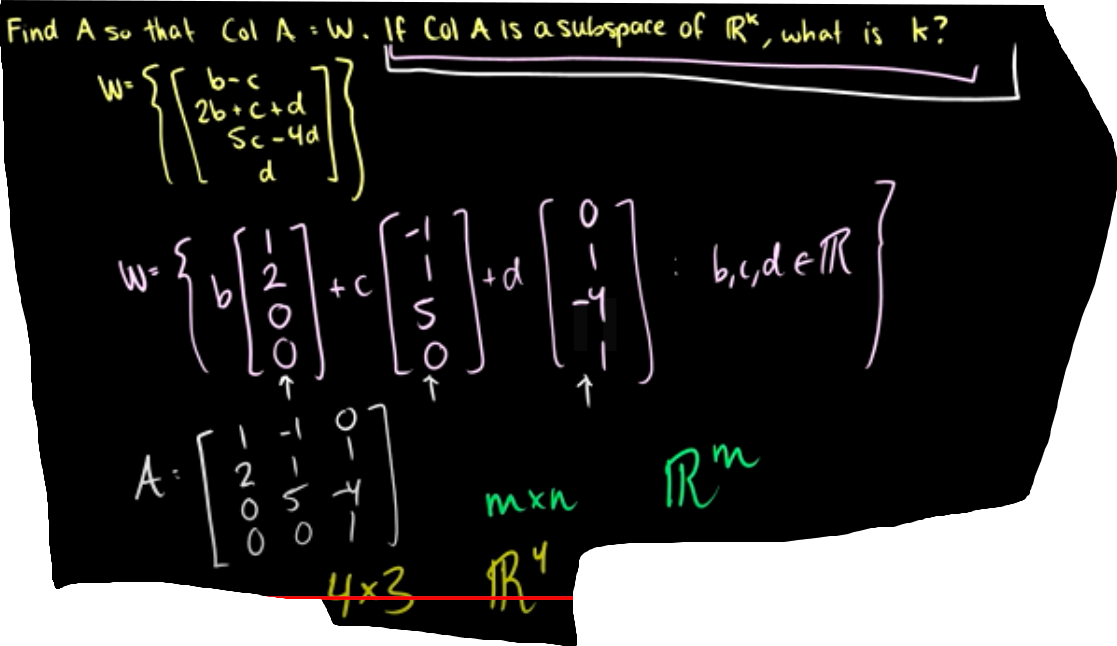 Find A so that Col A = W. If Col A is a subspace of ℝᵏ, what is k?
W = { [ b-c
2b+c+d
5c-4d
d ] }
W = { b [ 1 2 0 0 ] + c [ -1 1 5 0 ] + d [ 0 1 -4 1 ] : b,c,d ∈ ℝ }
↑ ↑ ↑
A = [ 1 -1 0
2 1 1
0 5 -4
0 0 1 ]
m×n ℝᵐ
4×3 ℝ⁴